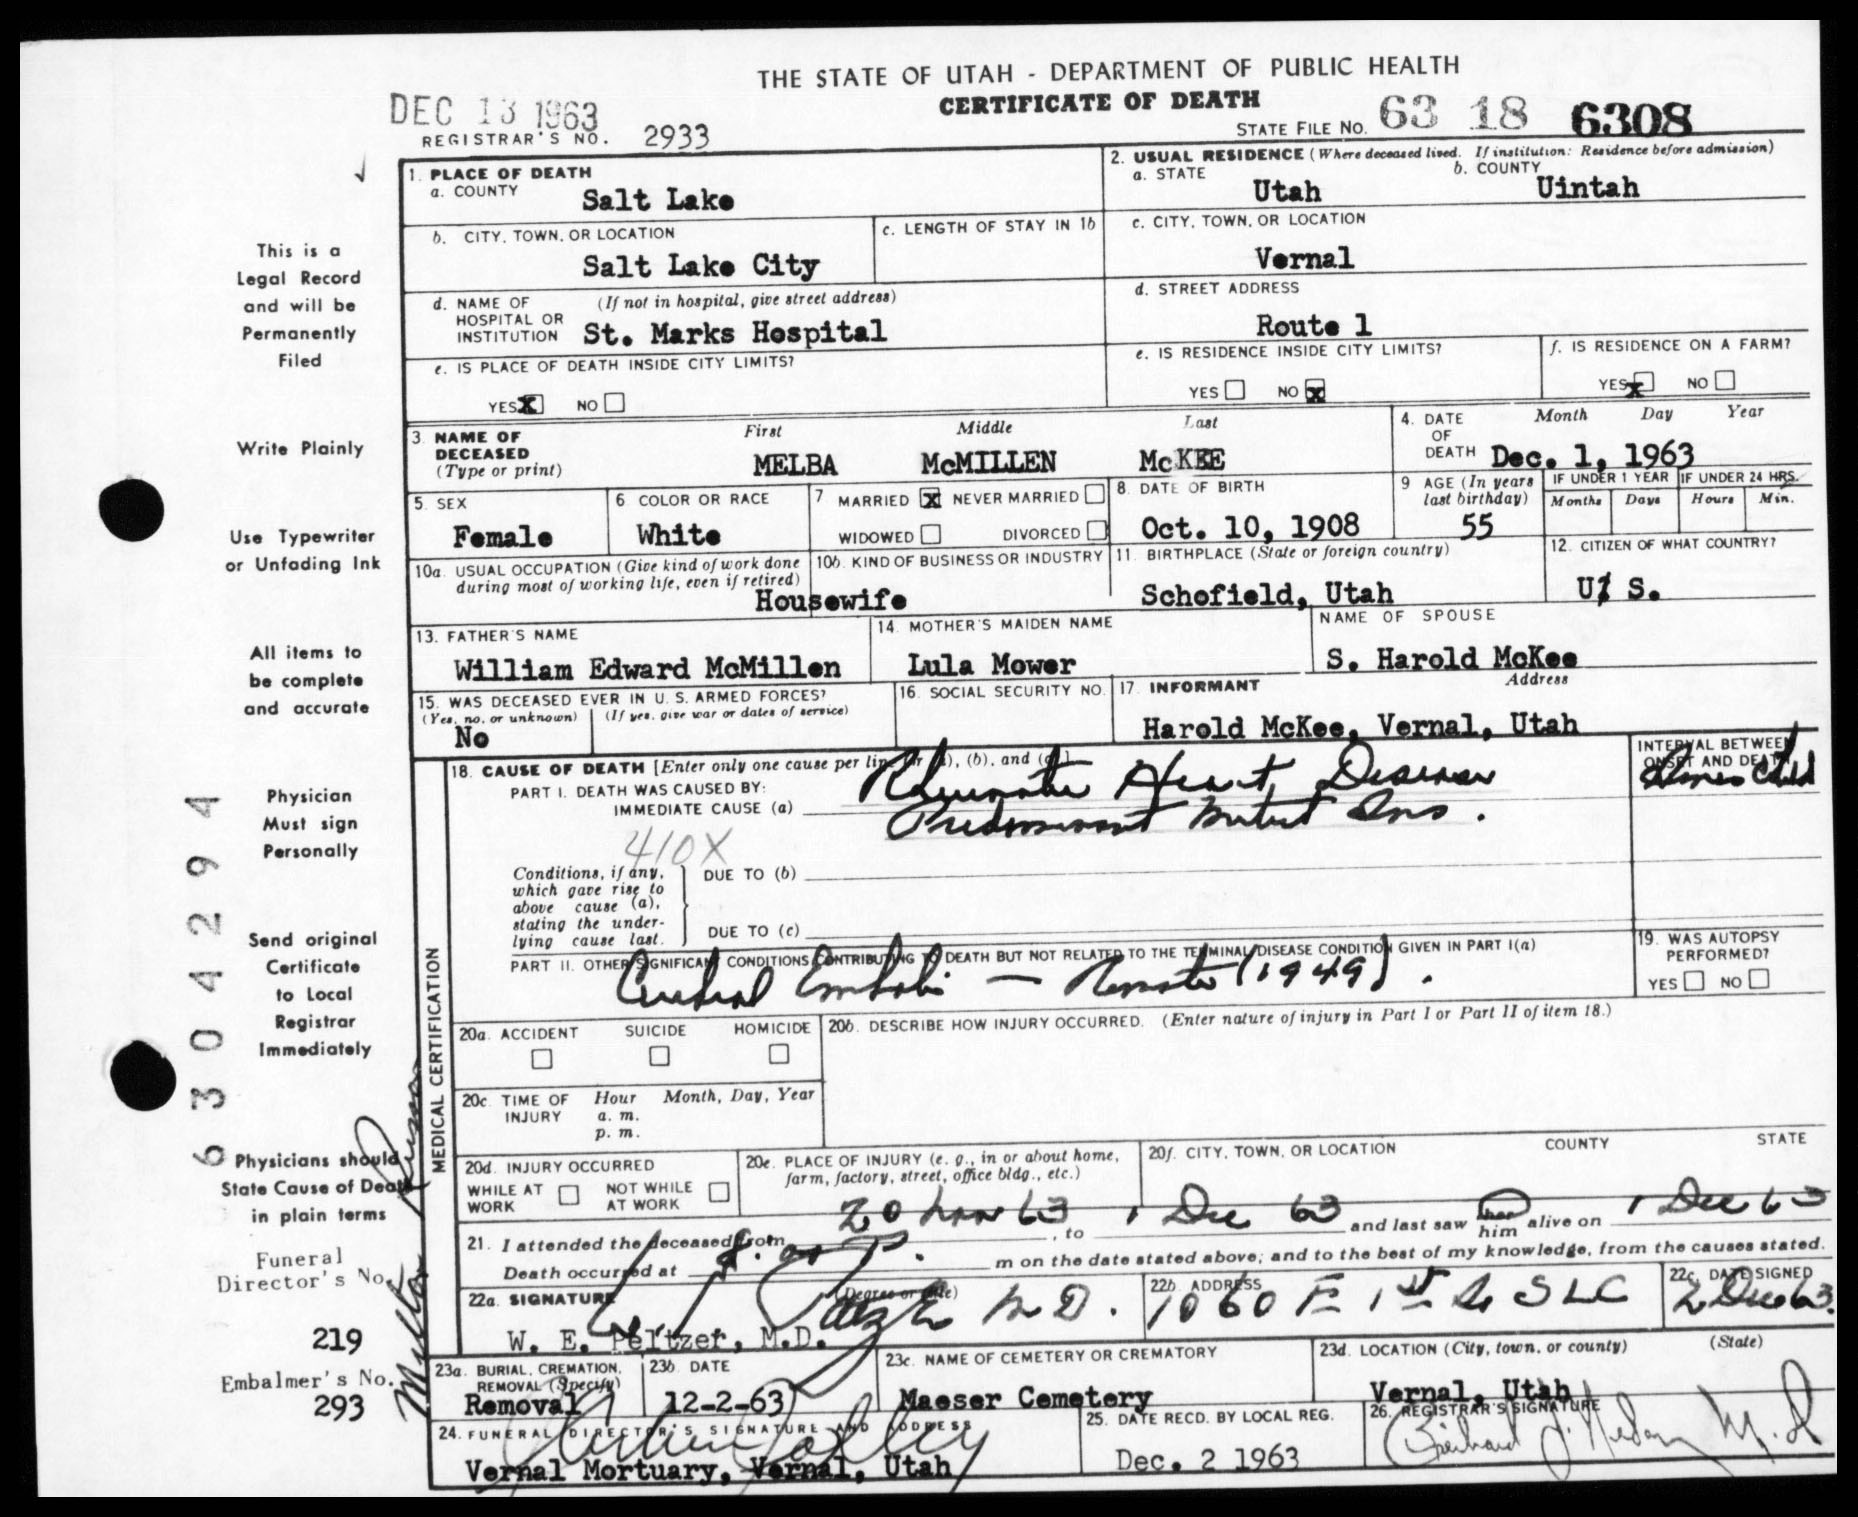 THE STATE OF UTAH - DEPARTMENT OF PUBLIC HEALTH
CERTIFICATE OF DEATH
DEC 13 1963
REGISTRAR'S NO. 2933
STATE FILE NO. 63 18 6308
1. PLACE OF DEATH
a. COUNTY
Salt Lake
2. USUAL RESIDENCE (Where deceased lived. If institution: Residence before admission)
a. STATE
Utah
b. COUNTY
Uintah
b. CITY, TOWN, OR LOCATION
Salt Lake City
c. LENGTH OF STAY IN 1b
c. CITY, TOWN, OR LOCATION
Vernal
d. NAME OF HOSPITAL OR INSTITUTION
(If not in hospital, give street address)
St. Marks Hospital
d. STREET ADDRESS
Route 1
e. IS PLACE OF DEATH INSIDE CITY LIMITS?
YES X NO
e. IS RESIDENCE INSIDE CITY LIMITS?
YES NO X
f. IS RESIDENCE ON A FARM?
YES X NO
3. NAME OF DECEASED
(Type or print)
First Middle Last
MELBA McMILLEN McKEE
4. DATE OF DEATH
Month Day Year
Dec. 1, 1963
5. SEX
Female
6 COLOR OR RACE
White
7 MARRIED X NEVER MARRIED
WIDOWED DIVORCED
8. DATE OF BIRTH
Oct. 10, 1908
9 AGE (In years last birthday)
55
IF UNDER 1 YEAR
Months Days
IF UNDER 24 HRS.
Hours Min.
10a. USUAL OCCUPATION (Give kind of work done during most of working life, even if retired)
Housewife
10b. KIND OF BUSINESS OR INDUSTRY
11. BIRTHPLACE (State or foreign country)
Schofield, Utah
12. CITIZEN OF WHAT COUNTRY?
U. S.
13. FATHER'S NAME
William Edward McMillen
14. MOTHER'S MAIDEN NAME
Lula Mower
NAME OF SPOUSE
S. Harold McKee
15. WAS DECEASED EVER IN U. S. ARMED FORCES?
(Yes, no, or unknown) (If yes, give war or dates of service)
No
16. SOCIAL SECURITY NO.
17. INFORMANT
Address
Harold McKee, Vernal, Utah
MEDICAL CERTIFICATION
18. CAUSE OF DEATH [Enter only one cause per line for (a), (b), and (c).]
PART I. DEATH WAS CAUSED BY:
IMMEDIATE CAUSE (a)
Rheumatic Heart Disease
Predominant Mitral Ins.
INTERVAL BETWEEN ONSET AND DEATH
Child
410X
Conditions, if any, which gave rise to above cause (a), stating the underlying cause last.
DUE TO (b)
DUE TO (c)
PART II. OTHER SIGNIFICANT CONDITIONS CONTRIBUTING TO DEATH BUT NOT RELATED TO THE TERMINAL DISEASE CONDITION GIVEN IN PART I(a)
Cerebral Emboli — Remote (1949).
19. WAS AUTOPSY PERFORMED?
YES NO
20a. ACCIDENT SUICIDE HOMICIDE
20b. DESCRIBE HOW INJURY OCCURRED. (Enter nature of injury in Part I or Part II of item 18.)
20c. TIME OF INJURY
Hour Month, Day, Year
a. m.
p. m.
20d. INJURY OCCURRED
WHILE AT WORK NOT WHILE AT WORK
20e. PLACE OF INJURY (e. g., in or about home, farm, factory, street, office bldg., etc.)
20f. CITY, TOWN, OR LOCATION COUNTY STATE
21. I attended the deceased from 20 Nov 63, to 1 Dec 63 and last saw her him alive on 1 Dec 63
Death occurred at m on the date stated above; and to the best of my knowledge, from the causes stated.
22a. SIGNATURE
(Degree or title)
M D.
W. E. Peltzer, M.D.
22b. ADDRESS
1060 E 1st So SLC
22c. DATE SIGNED
2 Dec 63.
23a. BURIAL, CREMATION, REMOVAL (Specify)
Removal
23b. DATE
12-2-63
23c. NAME OF CEMETERY OR CREMATORY
Maeser Cemetery
23d. LOCATION (City, town, or county) (State)
Vernal, Utah
24. FUNERAL DIRECTOR'S SIGNATURE AND ADDRESS
Vernal Mortuary, Vernal, Utah
25. DATE RECD. BY LOCAL REG.
Dec. 2 1963
26. REGISTRAR'S SIGNATURE
This is a
Legal Record
and will be
Permanently
Filed
Write Plainly
Use Typewriter
or Unfading Ink
All items to
be complete
and accurate
Physician
Must sign
Personally
Send original
Certificate
to Local
Registrar
Immediately
Physicians should
State Cause of Death
in plain terms
Funeral
Director's No.
219
Embalmer's No.
293
6304294